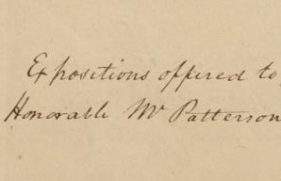 Expositions offered to
Honorable Mr Patterson